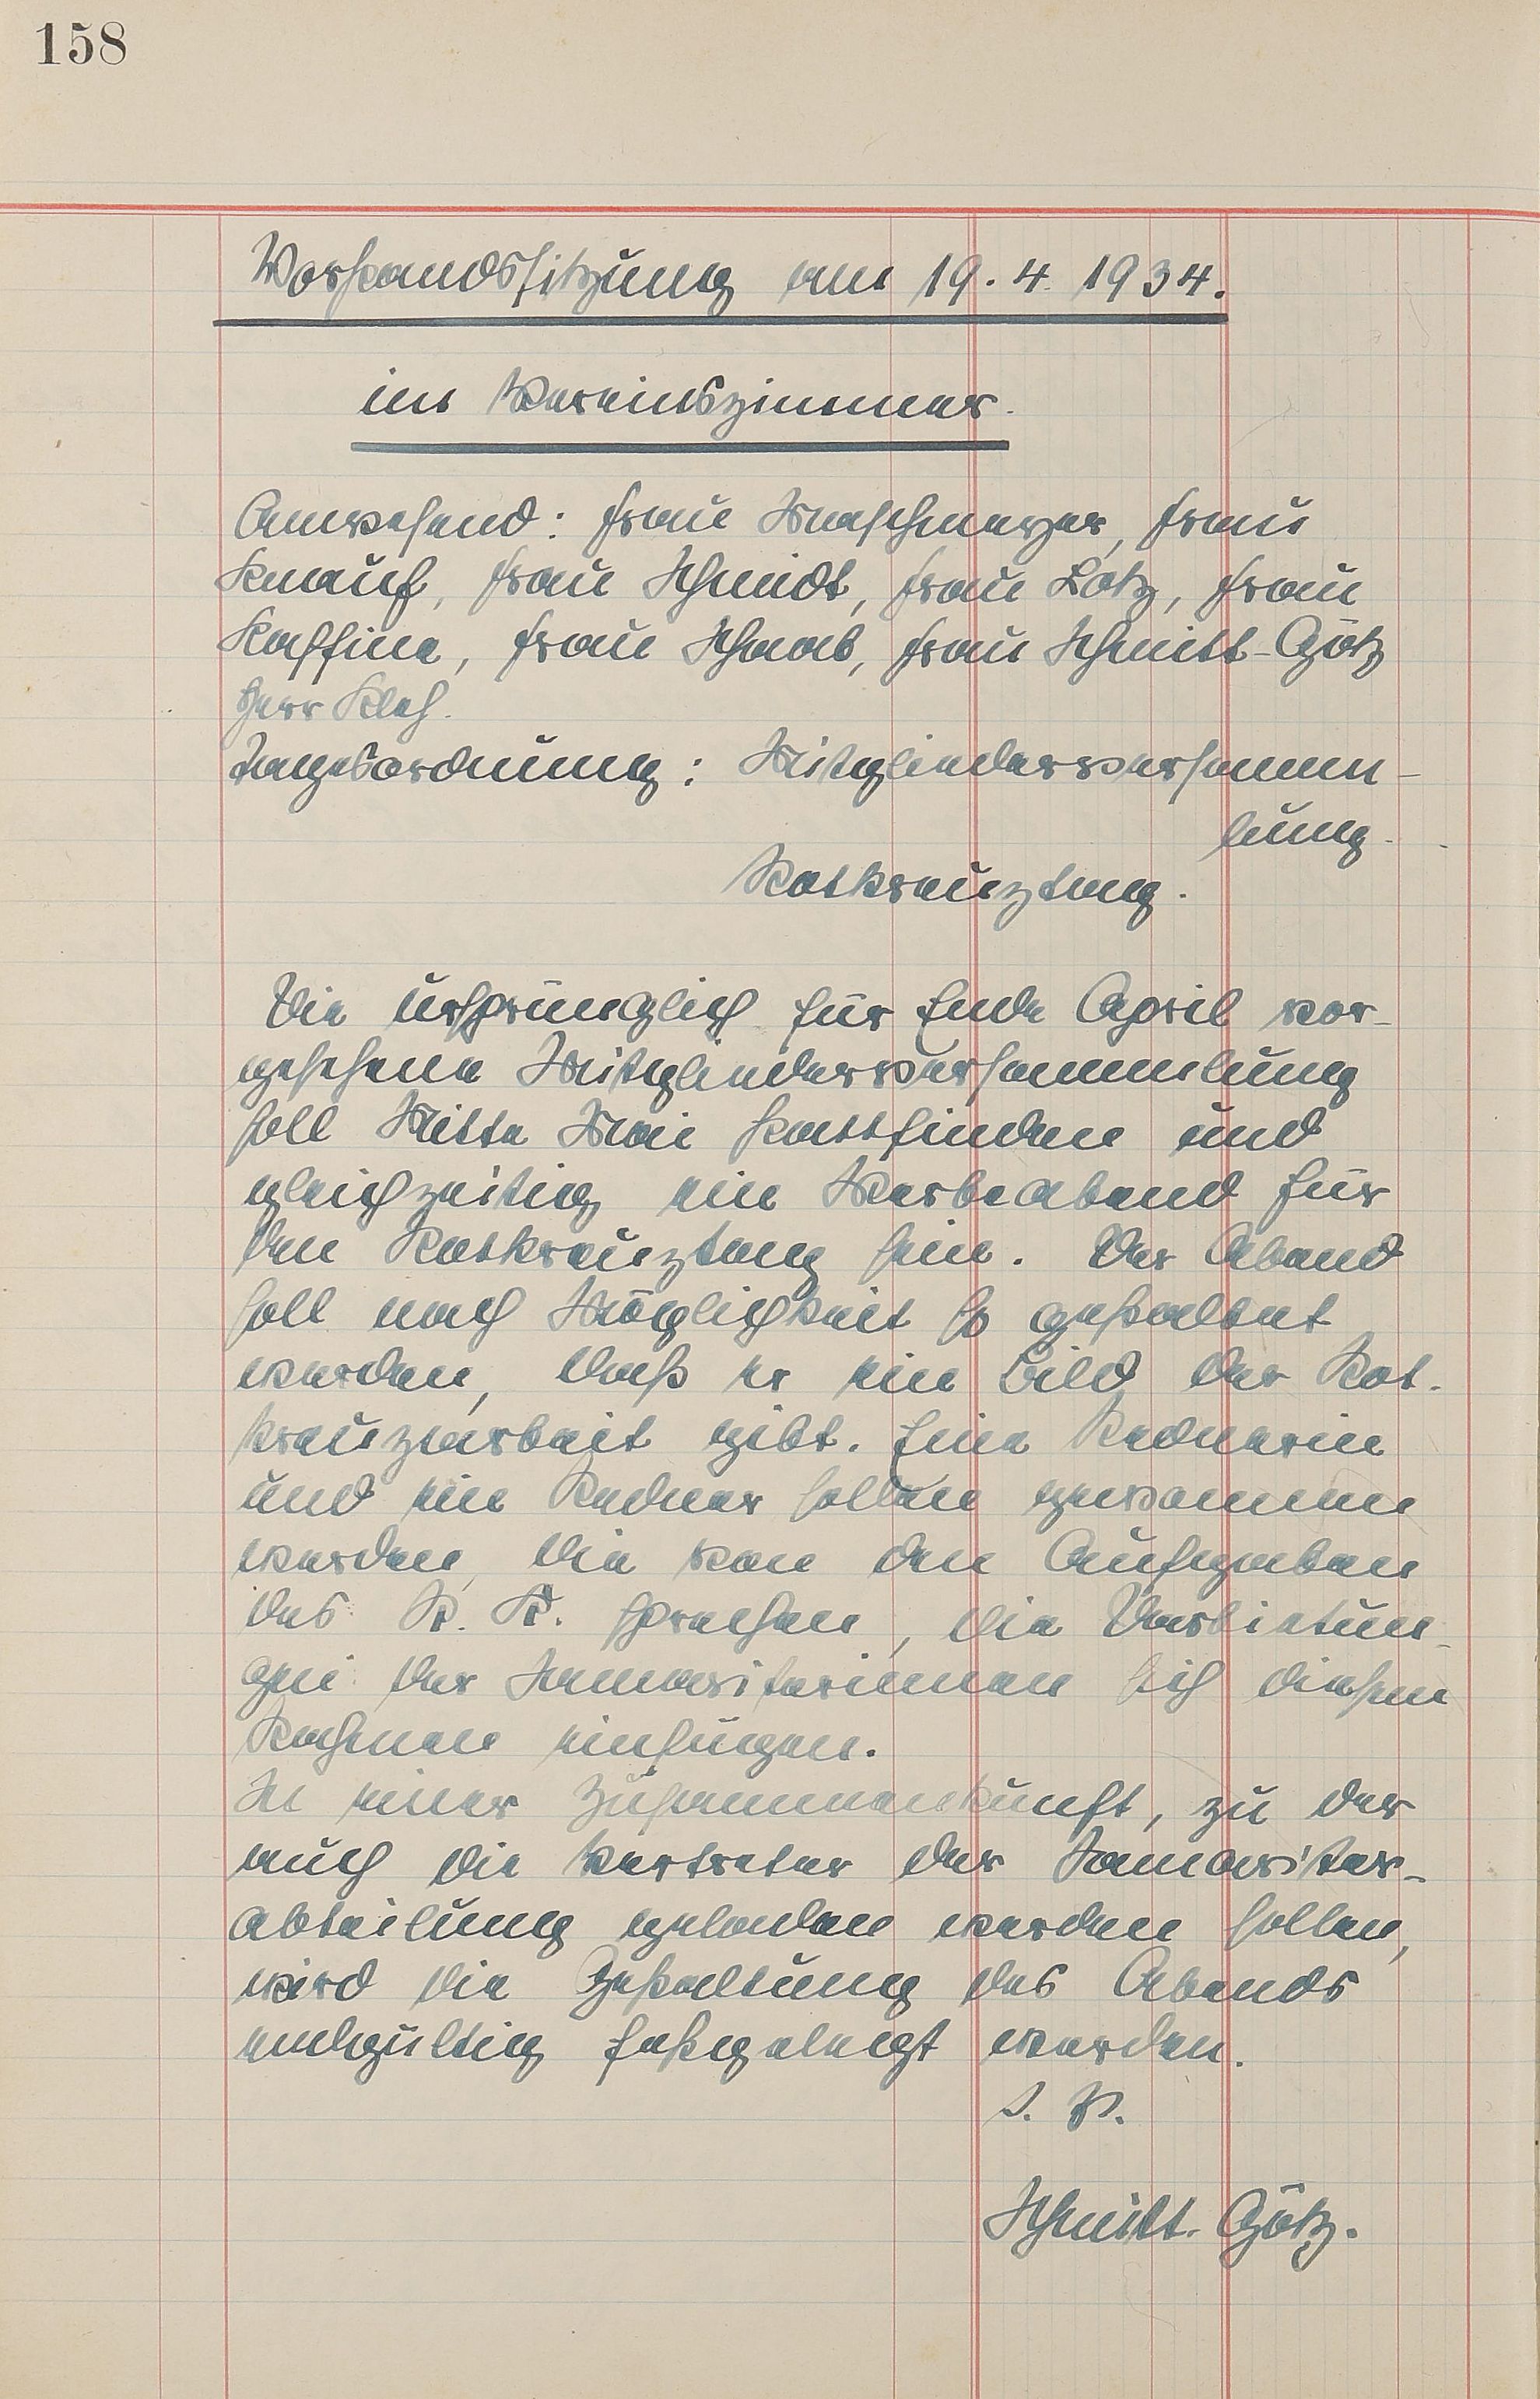 158
Vorstandssitzung am 19.4.1934.
im Vereinszimmer.
Anwesend: Frau Maschmeyer, Frau
Knauf, Frau Schmidt, Frau Lotz, Frau
Kaffine, Frau Schaab, Frau Schmitt-Götz
Herr Kleh.
Tagesordnung: Mitgliederversamm-
lung.
Rotkreuztag.
Die ursprünglich für Ende April vor-
gesehene Mitgliederversammlung
soll Mitte Mai stattfinden und
gleichzeitig ein Werbeabend für
den Rotkreuztag sein. Der Abend
soll nach Möglichkeit so gestaltet
werden, daß er ein Bild der Rot-
kreuzarbeit gibt. Eine Rednerin
und ein Redner sollen gewonnen
werden, die von den Aufgaben
des R. K. sprechen, die Darbietun-
gen der Samariterinnen sich diesem
Rahmen einfügen.
In einer Zusammenkunft, zu der
auch die Vertreter der Samariter-
abteilung geladen werden sollen,
wird die Gestaltung des Abends
endgültig festgelegt werden.
I. V.
Schmitt-Götz.